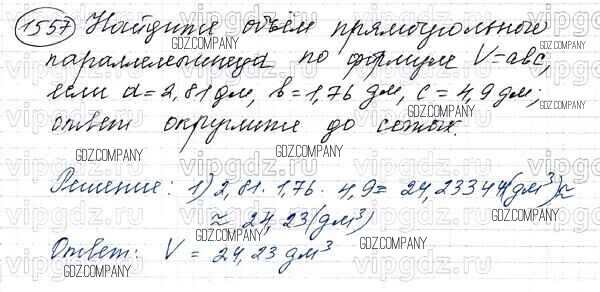 1557 Найдите объём прямоугольного
параллелепипеда по формуле V=abc,
если a=2,81 дм, b=1,76 дм, c=4,9 дм;
ответ округлите до сотых.
Решение: 1) 2,81·1,76·4,9=24,23344(дм³)≈
≈24,23(дм³)
Ответ: V=24,23 дм³
GDZ.COMPANY
vipgdz.ru